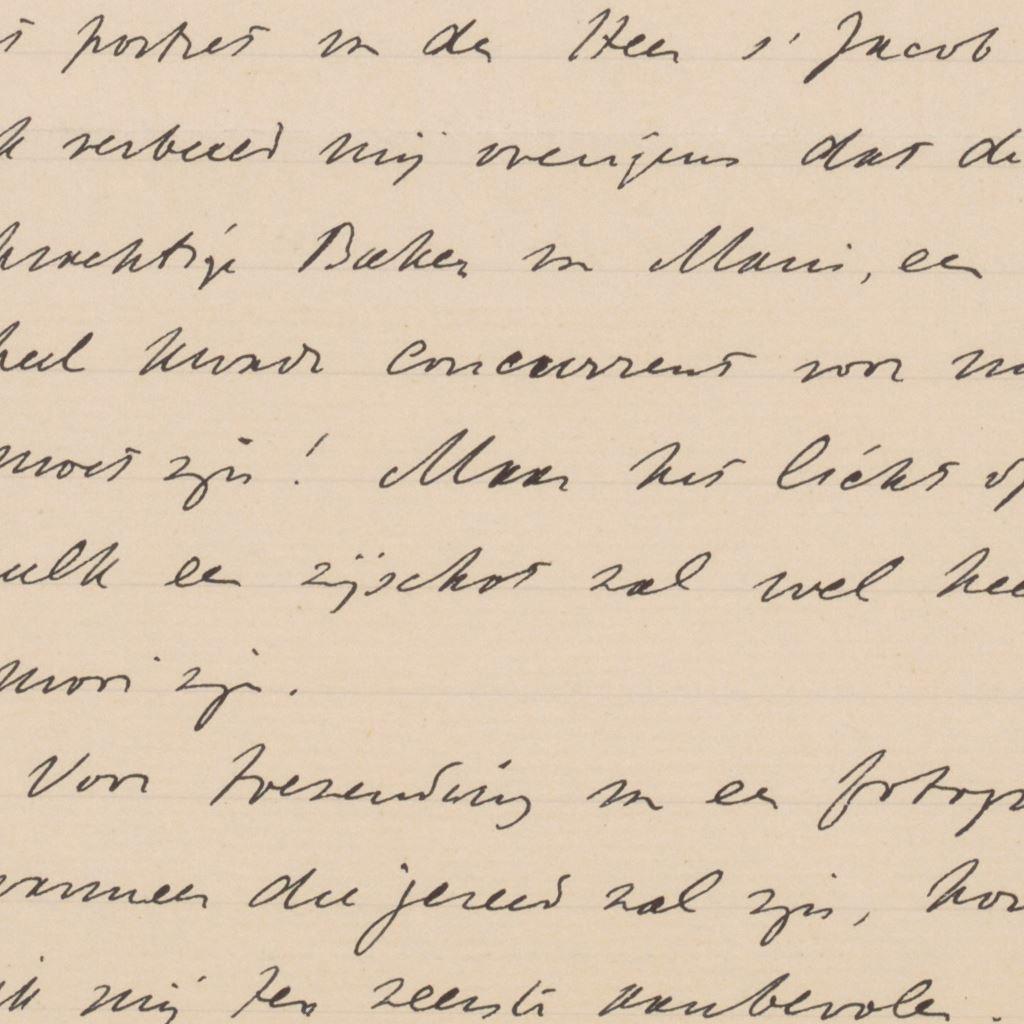 t portret van den Heer s'Jacob
k verbeeld mij overigens dat de
krachtige Baken van Maris, een
heel kwade concurrent voor m
moet zijn! Maar het licht op
zulk een zijschot zal wel hee
mooi zijn.
Voor toezending van een fotogr
wanneer die gereed zal zijn, hou
ik mij ten zeerste aanbevolen.